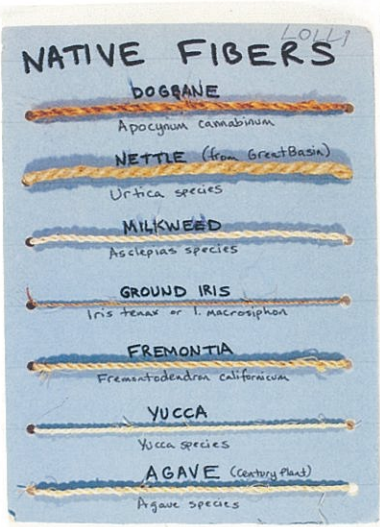 LOLLY
NATIVE FIBERS
DOGBANE
Apocynum cannabinum
NETTLE (from Great Basin)
Urtica species
MILKWEED
Asclepias species
GROUND IRIS
Iris tenax or I. macrosiphon
FREMONTIA
Fremontodendron californicum
YUCCA
Yucca species
AGAVE (Century Plant)
Agave species